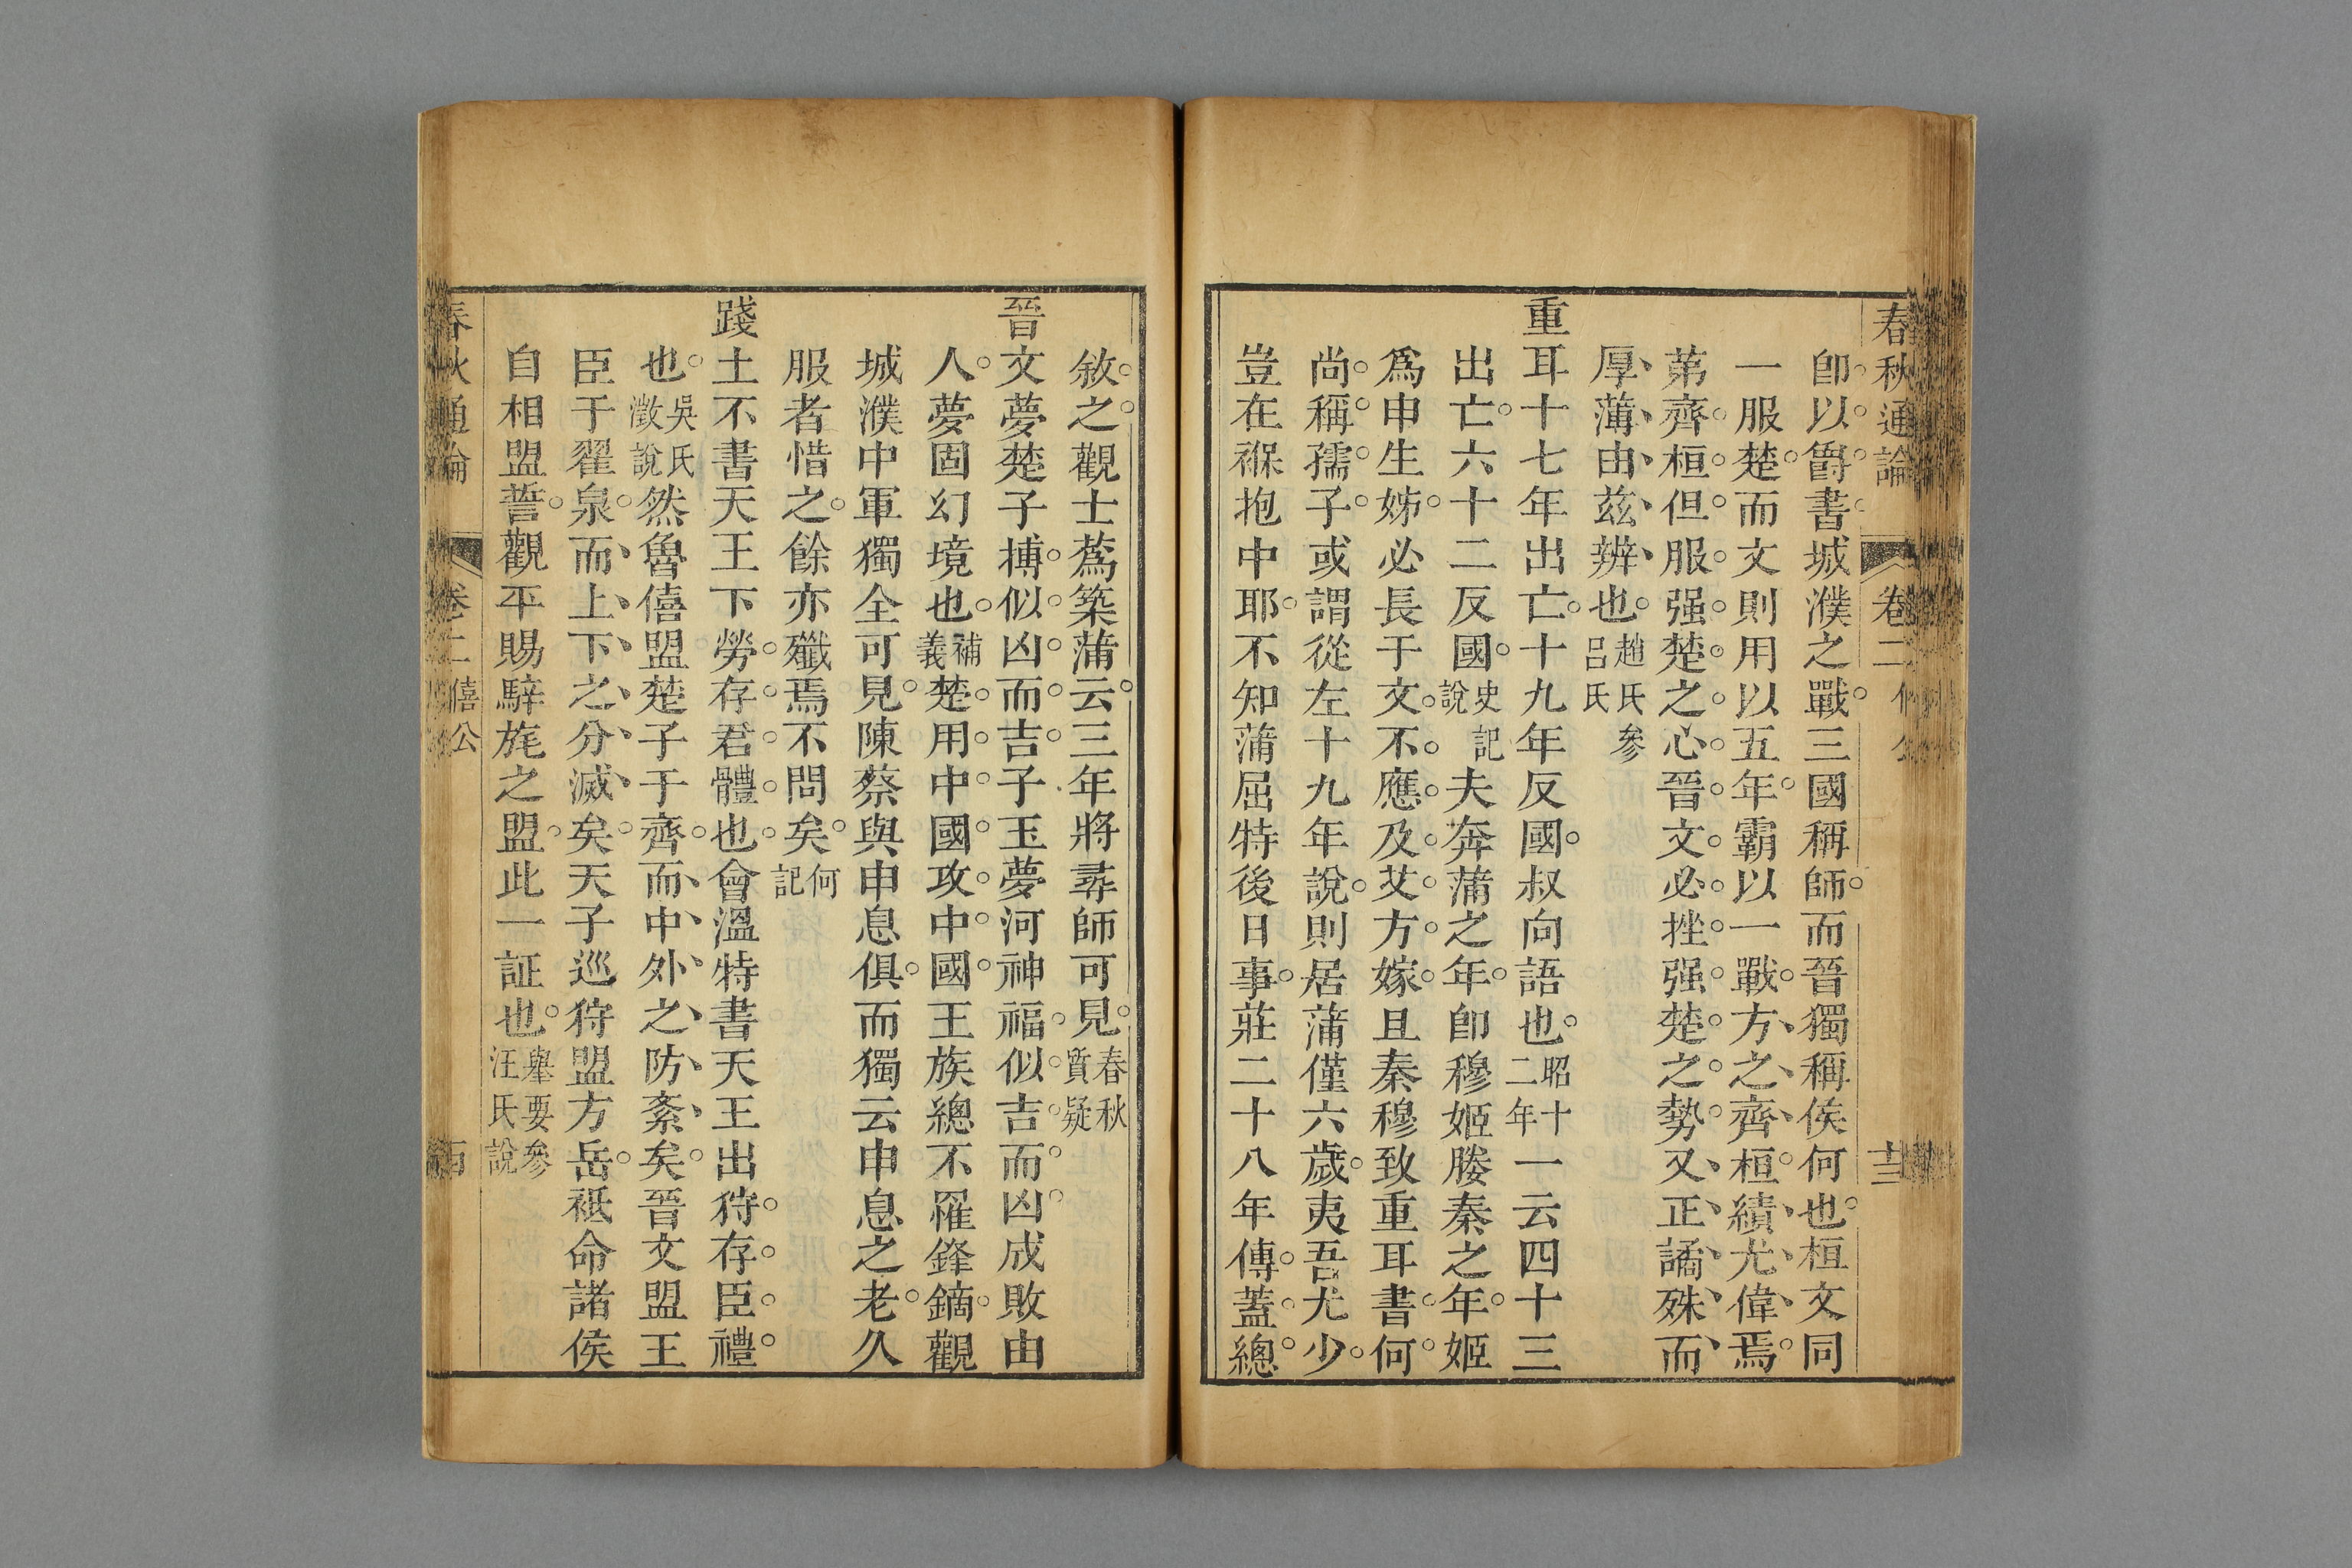 春秋通論 卷二 十三
卽以爵書城濮之戰三國稱師而晉獨稱侯何也桓文同
一服楚而文則用以五年霸以一戰方之齊桓績尤偉焉
第齊桓但服强楚之心晉文必挫强楚之勢又正譎殊而
厚薄由茲辨也趙氏參呂氏
重耳十七年出亡十九年反國叔向語也昭十二年一云四十三
出亡六十二反國史記說夫奔蒲之年卽穆姬媵秦之年姬
爲申生姊必長于文不應及艾方嫁且秦穆致重耳書何
尚稱孺子或謂從左十九年說則居蒲僅六歲夷吾尤少
豈在褓抱中耶不知蒲屈特後日事莊二十八年傳蓋總
敘之觀士蔿築蒲云三年將尋師可見春秋質疑
晉文夢楚子搏似凶而吉子玉夢河神福似吉而凶成敗由
人夢固幻境也補義楚用中國攻中國王族總不罹鋒鏑觀
城濮中軍獨全可見陳蔡與申息俱而獨云申息之老久
服者惜之餘亦殲焉不問矣何記
踐土不書天王下勞存君體也會溫特書天王出狩存臣禮
也吳氏澂說然魯僖盟楚子于齊而中外之防紊矣晉文盟王
臣于翟泉而上下之分滅矣天子巡狩盟方岳祗命諸侯
自相盟誓觀平賜騂旄之盟此一証也舉要參汪氏說
春秋通論 卷二 僖公